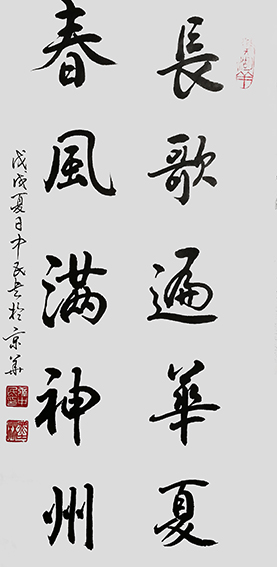 長歌遍華夏
春風满神州
戊戌夏日中民書於京華